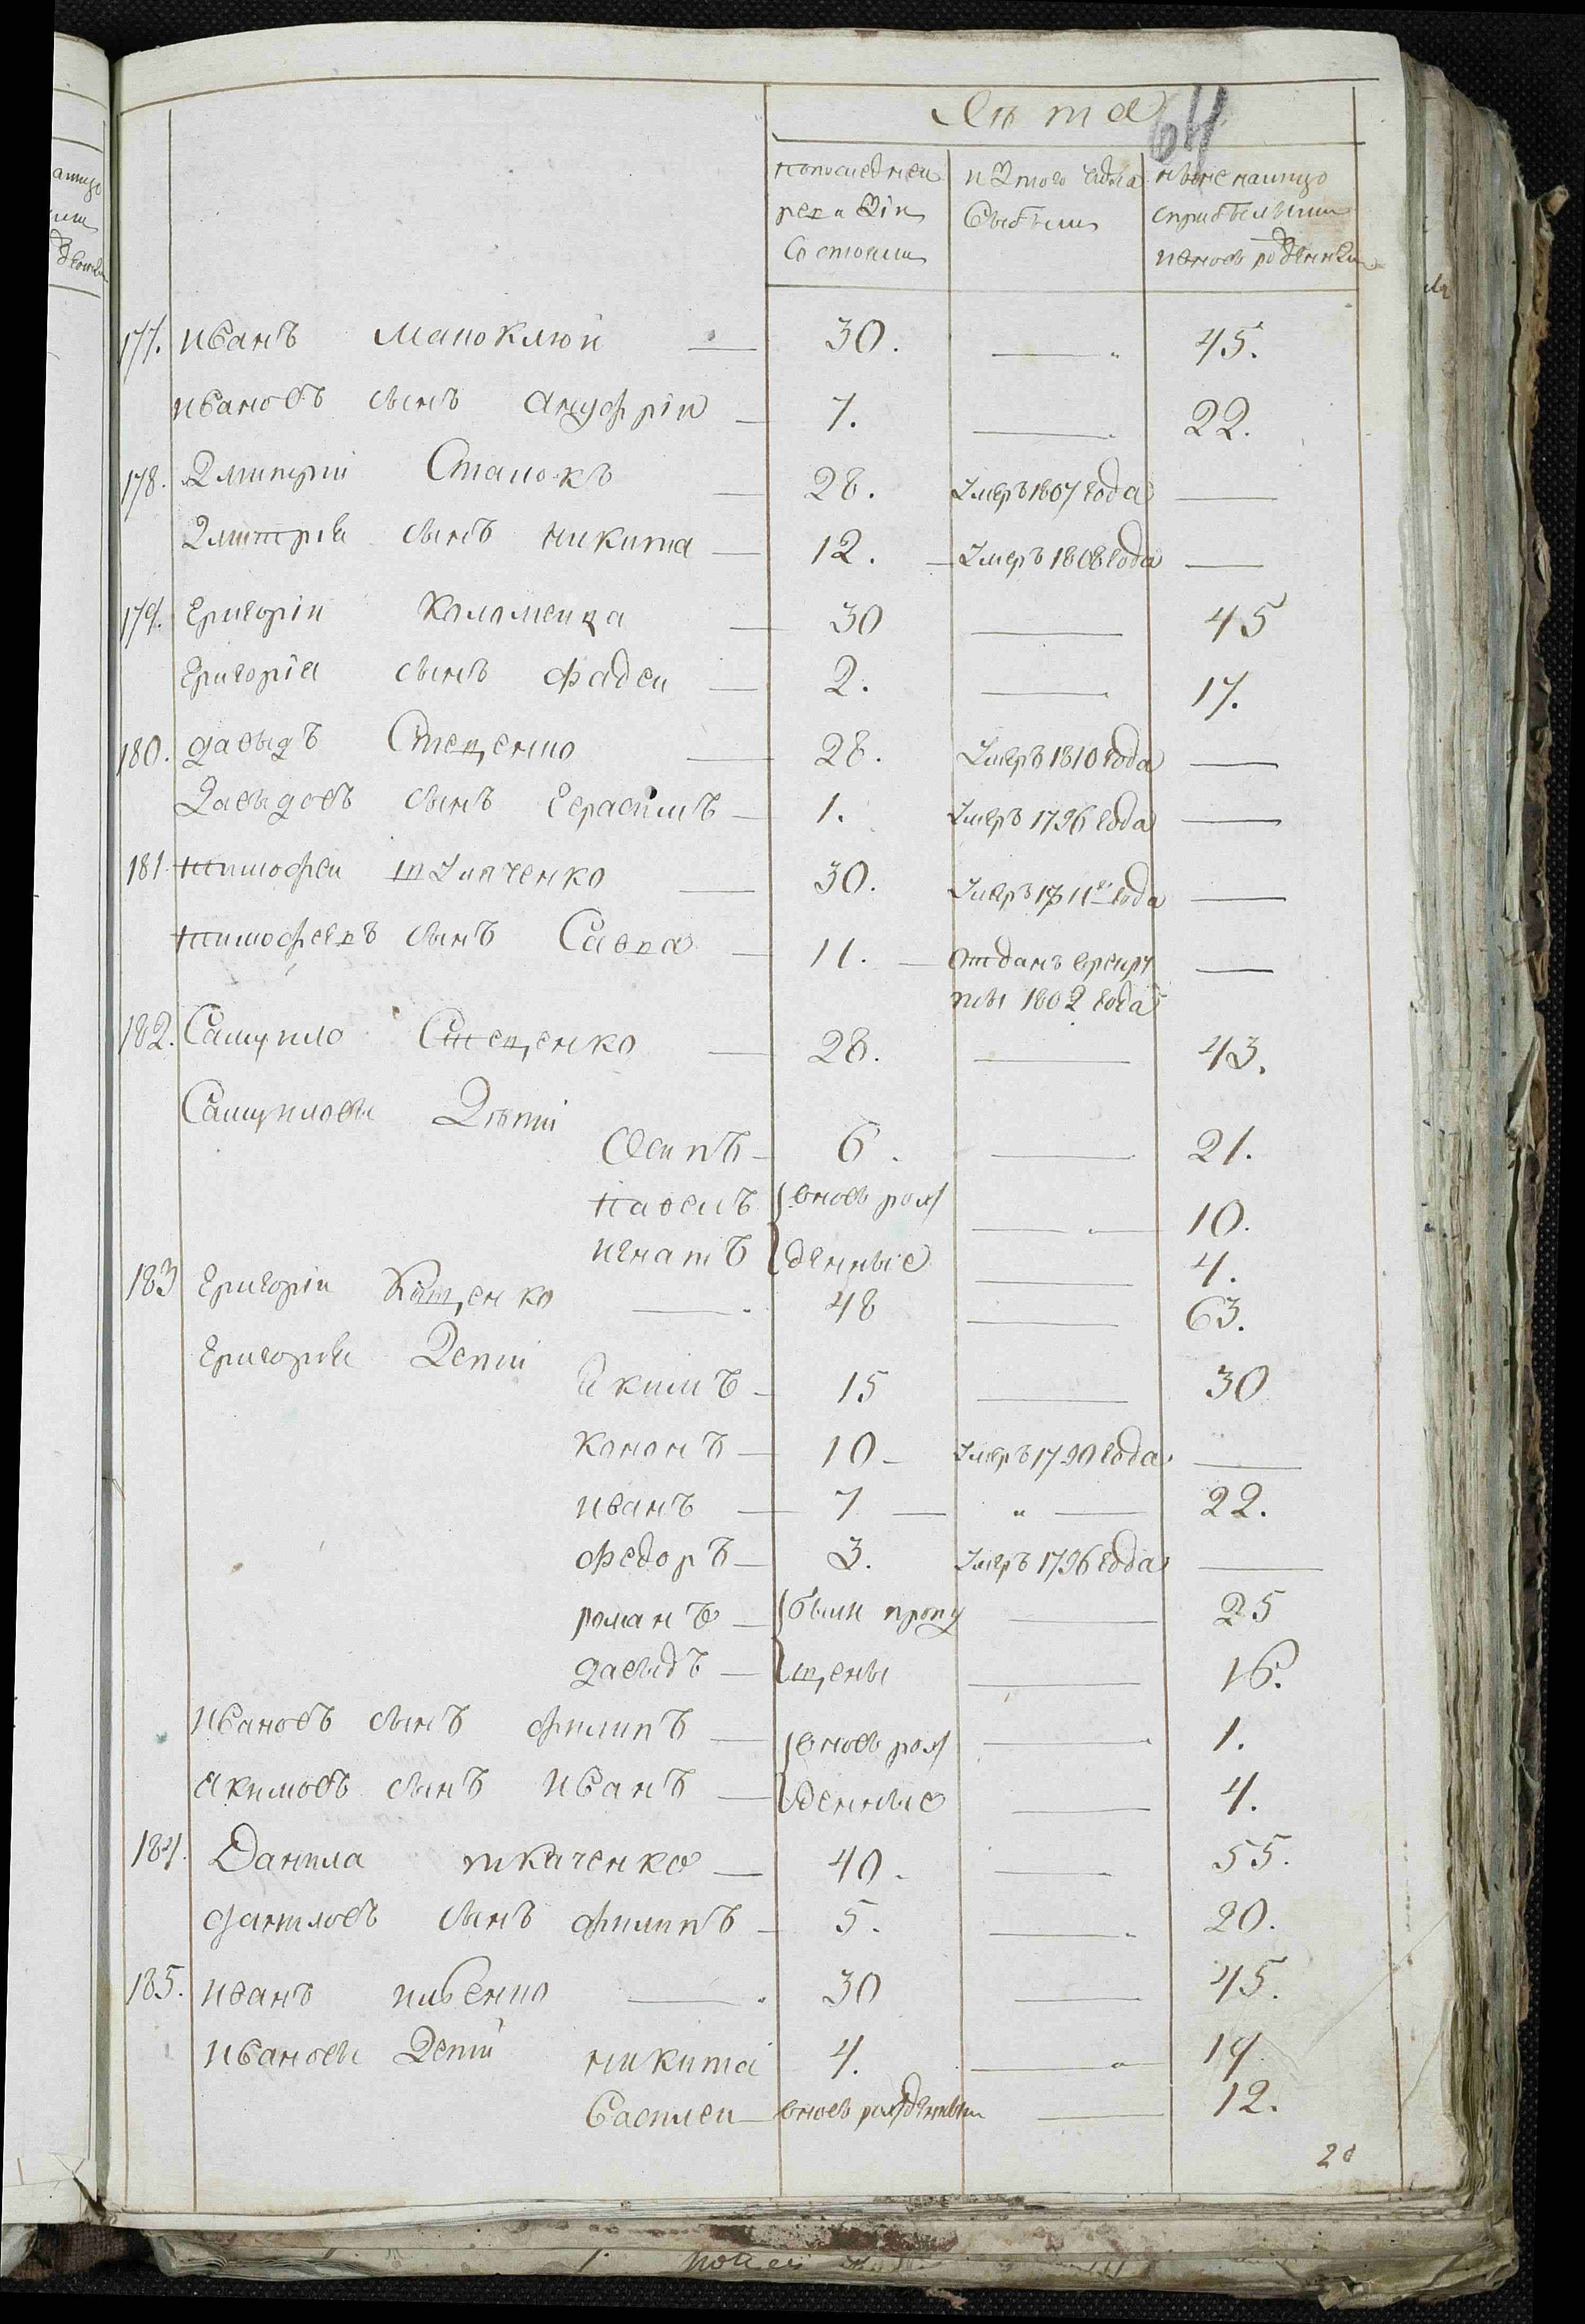 Лѣта
64
попоследнеи изтого числа ныне налицо
ревизіи выбыли сприбылыми
состояли ивновь рожденными
177. иванъ Малоклюй — 30. — 45.
ивановъ сынъ Ануфріи — 7. — 22.
178. Дмитріи Сталокъ — 28. Умеръ 1807 года —
Дмитріев сынъ никита — 12. — Умеръ 1808 года —
179. григоріи Коломеица — 30 — 45
григоріев сынъ фадеи — 2. — 17.
180. давыдъ Стеценко — 28. Умеръ 1810 года —
Давыдовъ сынъ герасимъ — 1. Умеръ 1796 года —
181 тимофеи шуляченко — 30. Умеръ 1811 года —
тимофеевъ сынъ Савва — 11. — отданъ врекру
ты 1802 года —
182. Самуило Стеценко — 28. — 43.
Самуиловы Дѣти
Осипъ — 6. — 21.
павелъ вновь рож — 10.
игнатъ денные — 4.
183 григоріи Кащенко — 48 — 63.
григорьевы Дети
Якимъ — 15 — 30
кононъ — 10 — Умеръ 1790 года —
иванъ — 7 — " — 22.
федоръ — 3. Умеръ 1796 года —
романъ — были пропу — 25
давыдъ — щены — 16.
ивановъ сынъ филипъ — вновь рож — 1.
Якимовъ сынъ иванъ — денные — 4.
184. Данила ткаченко — 40. — 55.
даниловъ сынъ филипъ — 5. — 20.
185. иванъ ильенко — 30 — 45.
ивановы Дети никита 4. — 19.
василеи — вновь рожденныи — 12.
20